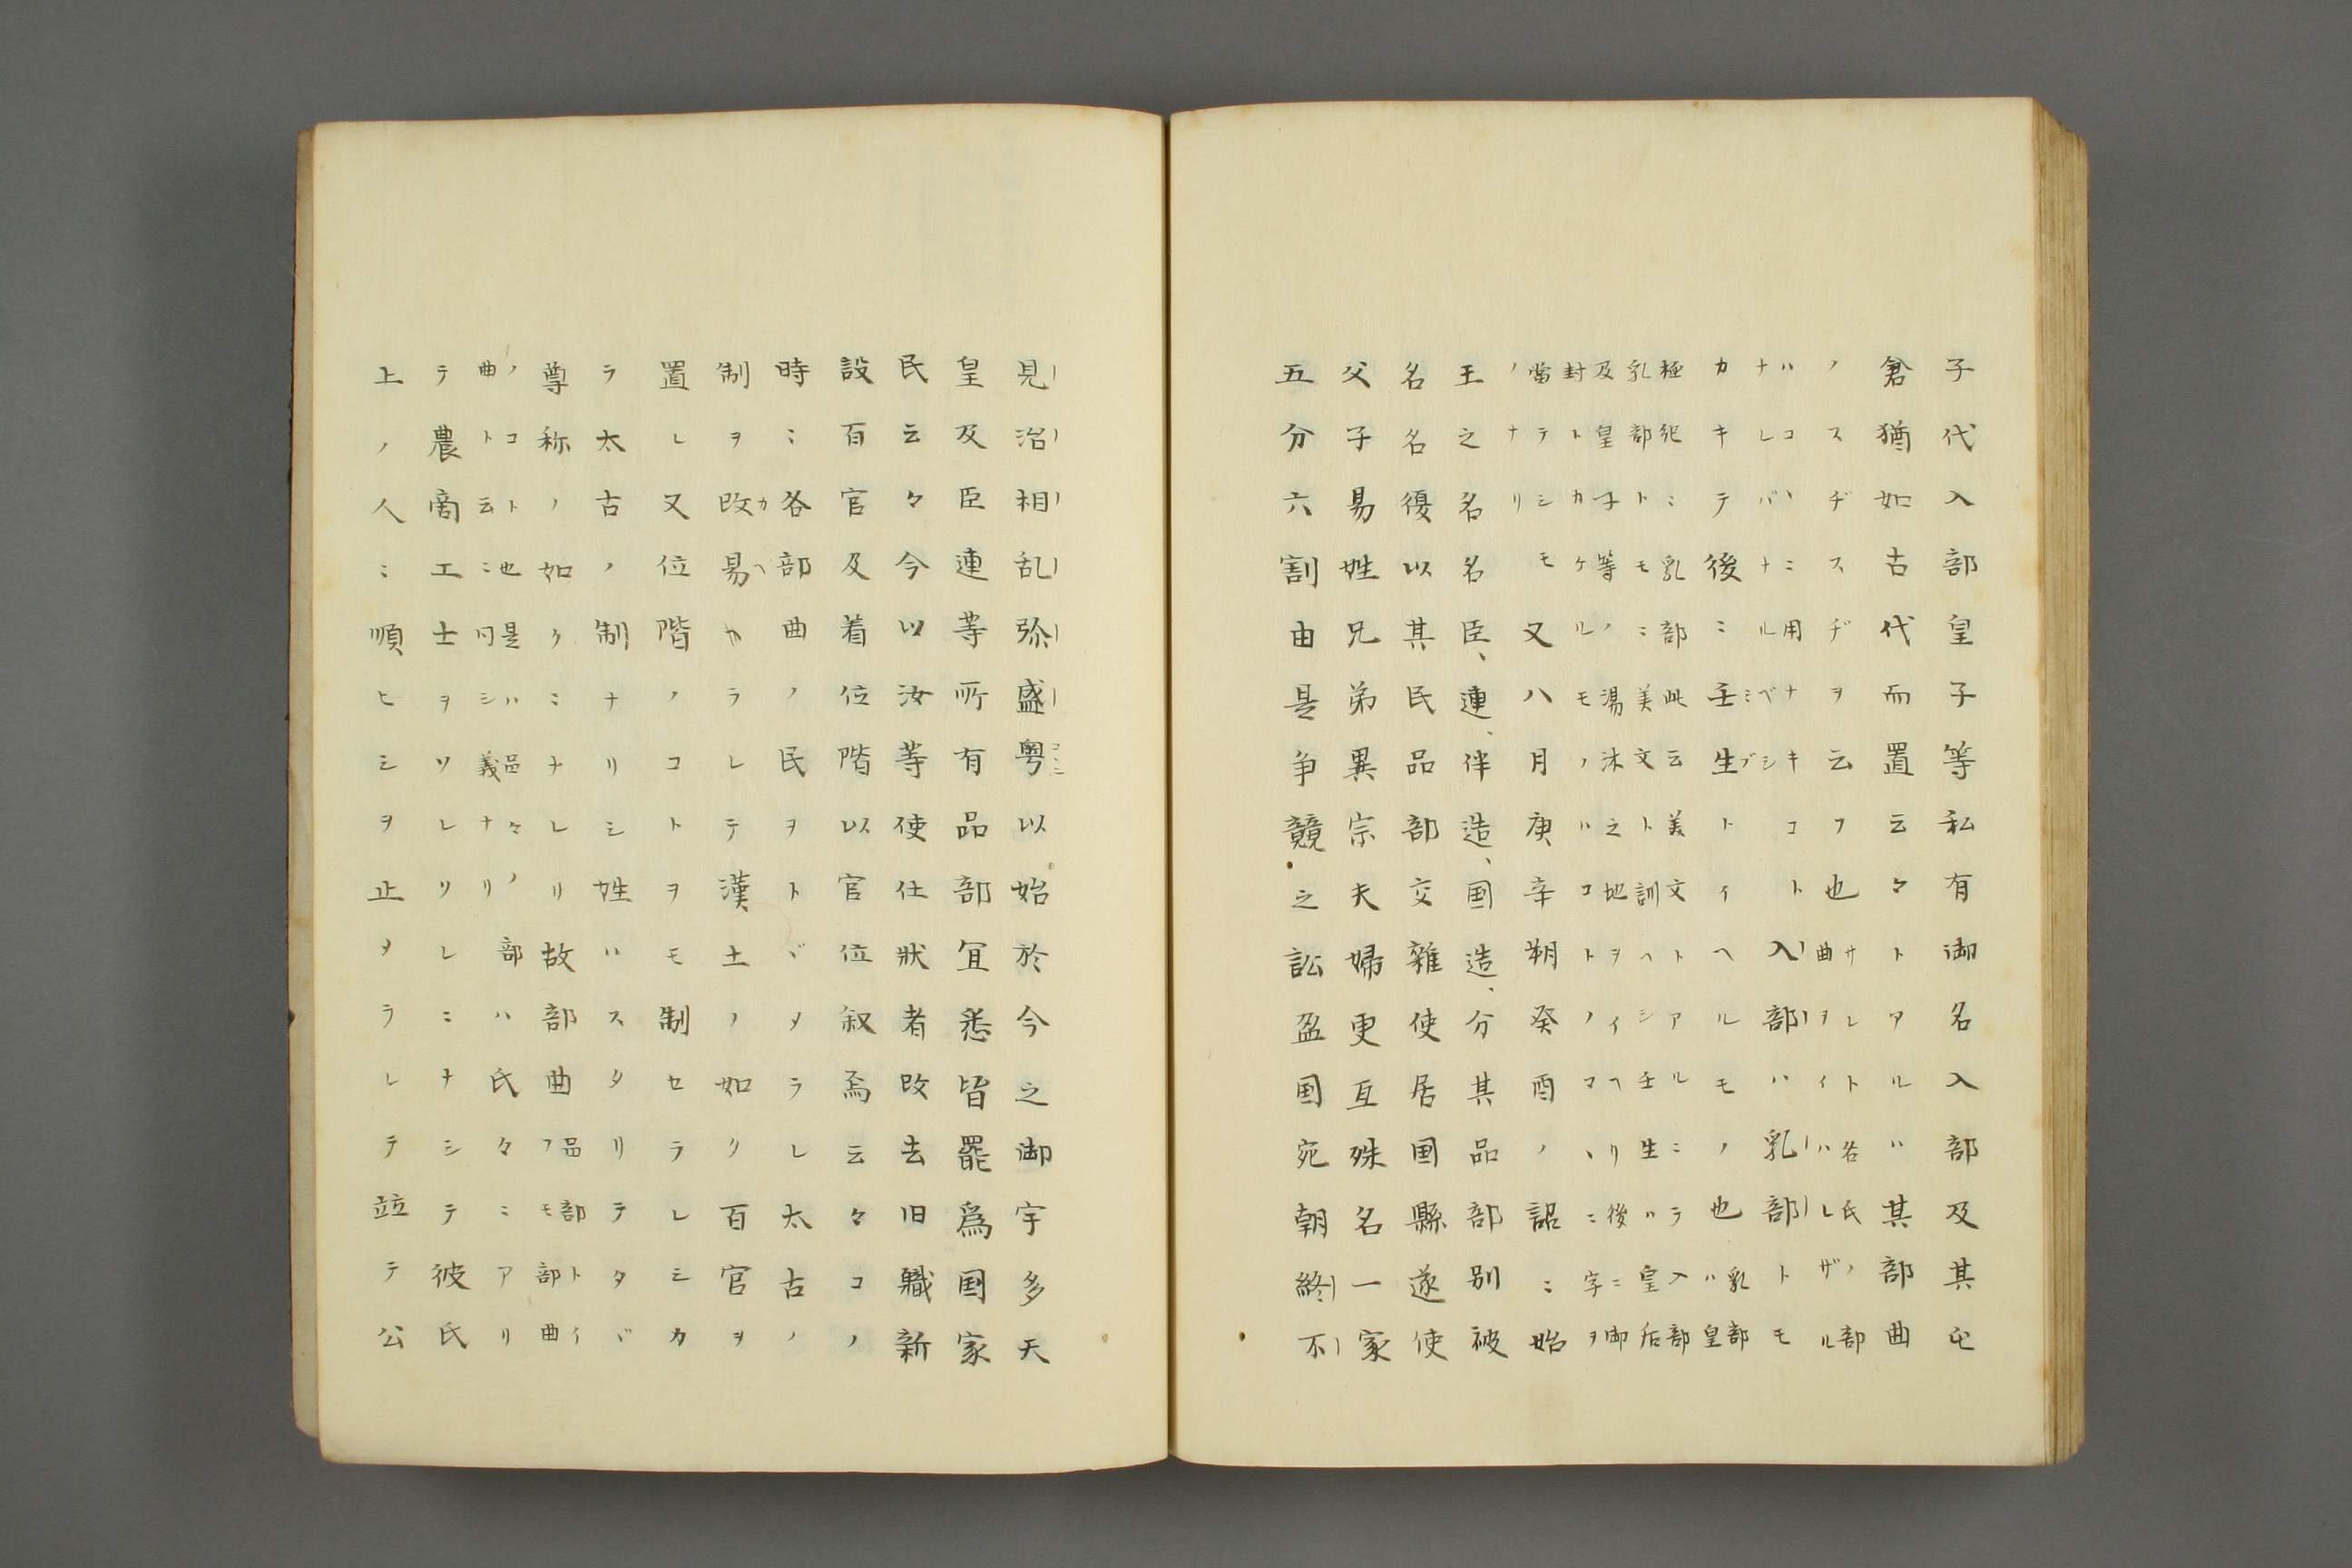 子代入部皇子等私有御名入部及其屯
倉猶如古代而置云々トアルハ其部曲
ノスヂスヂヲ云フ也サレト各氏ノ部曲ヲイハレザル
ハコヽニ用ナキコトナレバナルベシ入部ハ乳部トモ
カキテ後ニ壬生トイヘルモノ也乳部ハ皇
極紀ニ乳部此云美文トアルニテ入部乳部トモニ美文ト訓ヘシ壬生ハ皇后
及皇子等ノ湯沐之地ヲイヘリ後ニ御封トカケルモノハコトノマヽニ字ヲ
當テシモノナリ又八月庚辛朔癸酉ノ詔ニ始
王之名名臣、連、伴造、国造、分其品部別被
名名復以其民品部交雜使居国縣遂使
父子易姓兄弟異宗夫婦更互殊名一家
五分六割由是争競之訟盈国宛朝終不
見治相乱弥盛粤以始於今之御宇多天
皇及臣連等所有品部宜悉皆罷爲国家
民云々今以汝等使仕狀者改去旧職新
設百官及着位階以官位叙焉云々コノ
時ニ各部曲ノ民ヲトヾメラレ太古ノ
制ヲ改易カヘラレテ漢土ノ如ク百官ヲ
置レ又位階ノコトヲモ制セラレシカ
ラ太古ノ制ナリシ姓ハスタリテタヾ
尊称ノ如クニナレリ故部曲品部トイフモ部曲
ノコト也是ハ邑々ノ曲ト云ニ同シ義ナリ部ハ氏々ニアリ
テ農商工士ヲソレソレニナシテ彼氏
上ノ人ニ順ヒシヲ止メラレテ並テ公